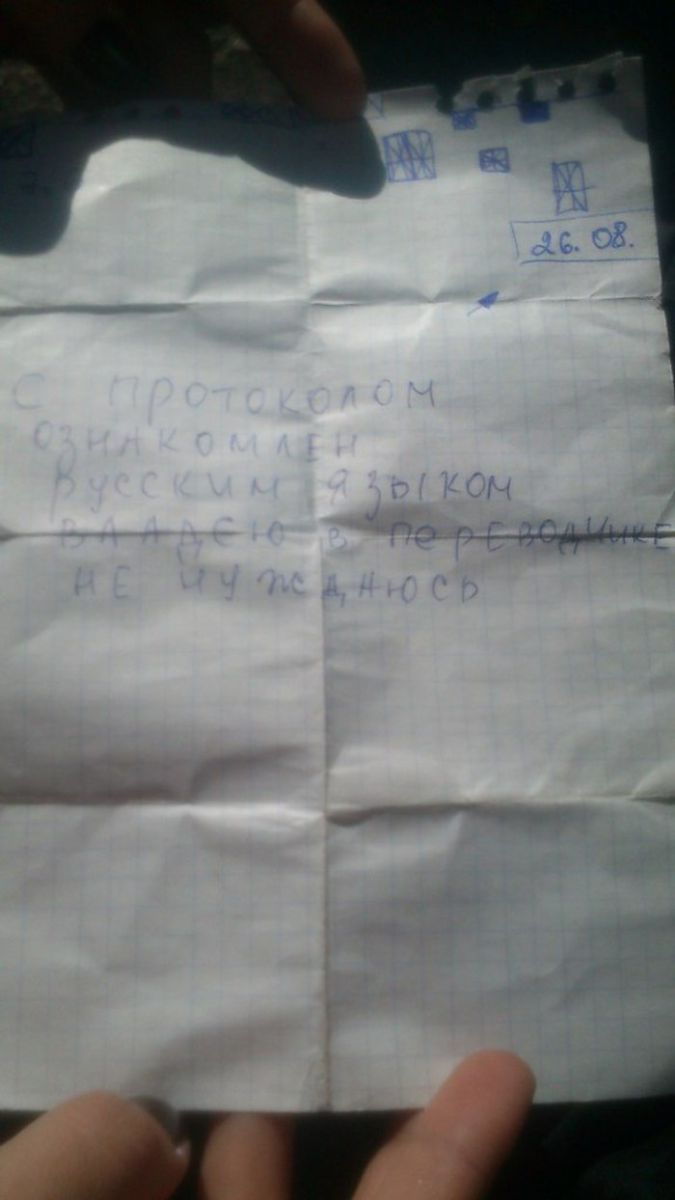 26.08.
С ПРОТОКОЛОМ
ОЗНАКОМЛЕН
РУССКИМ ЯЗЫКОМ
ВЛАДЕЮ В ПЕРЕВОДЧИКЕ
НЕ НУЖДАЮСЬ